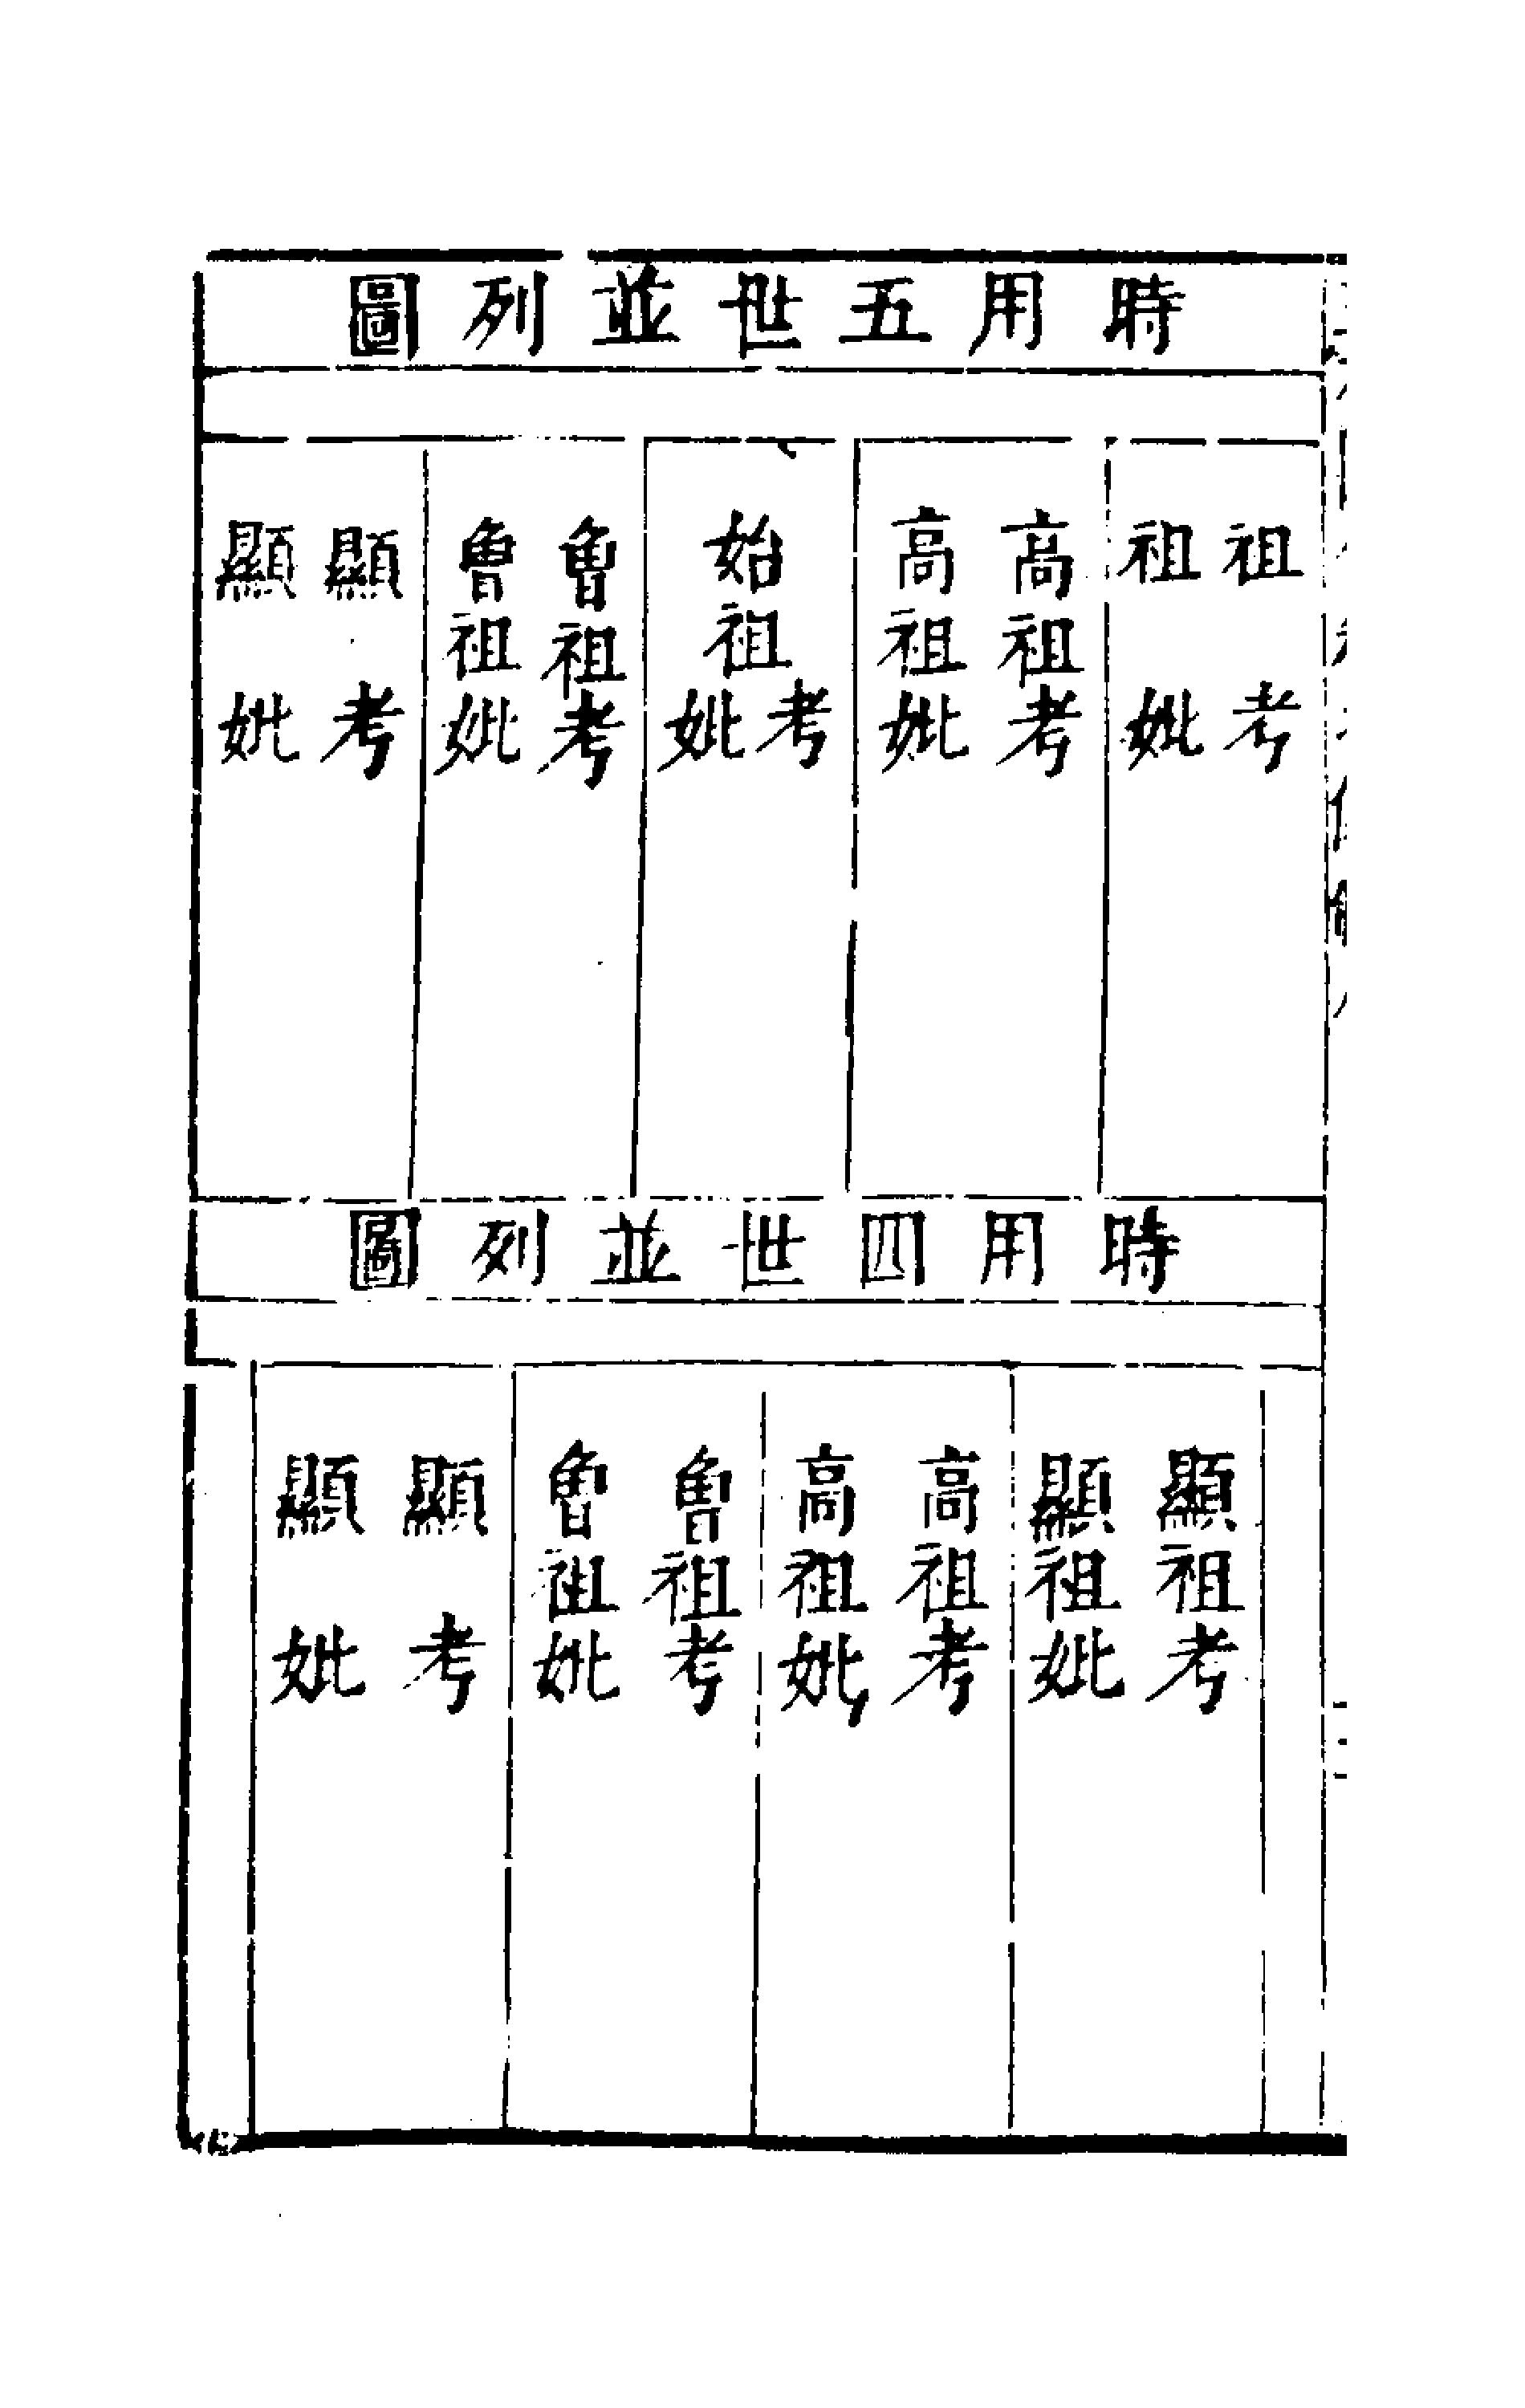 時用五世並列圖
祖考
祖妣
高祖考
高祖妣
始祖考妣
曾祖考
曾祖妣
顯考
顯妣
時用四世並列圖
顯祖考
顯祖妣
高祖考
高祖妣
曾祖考
曾祖妣
顯考
顯妣